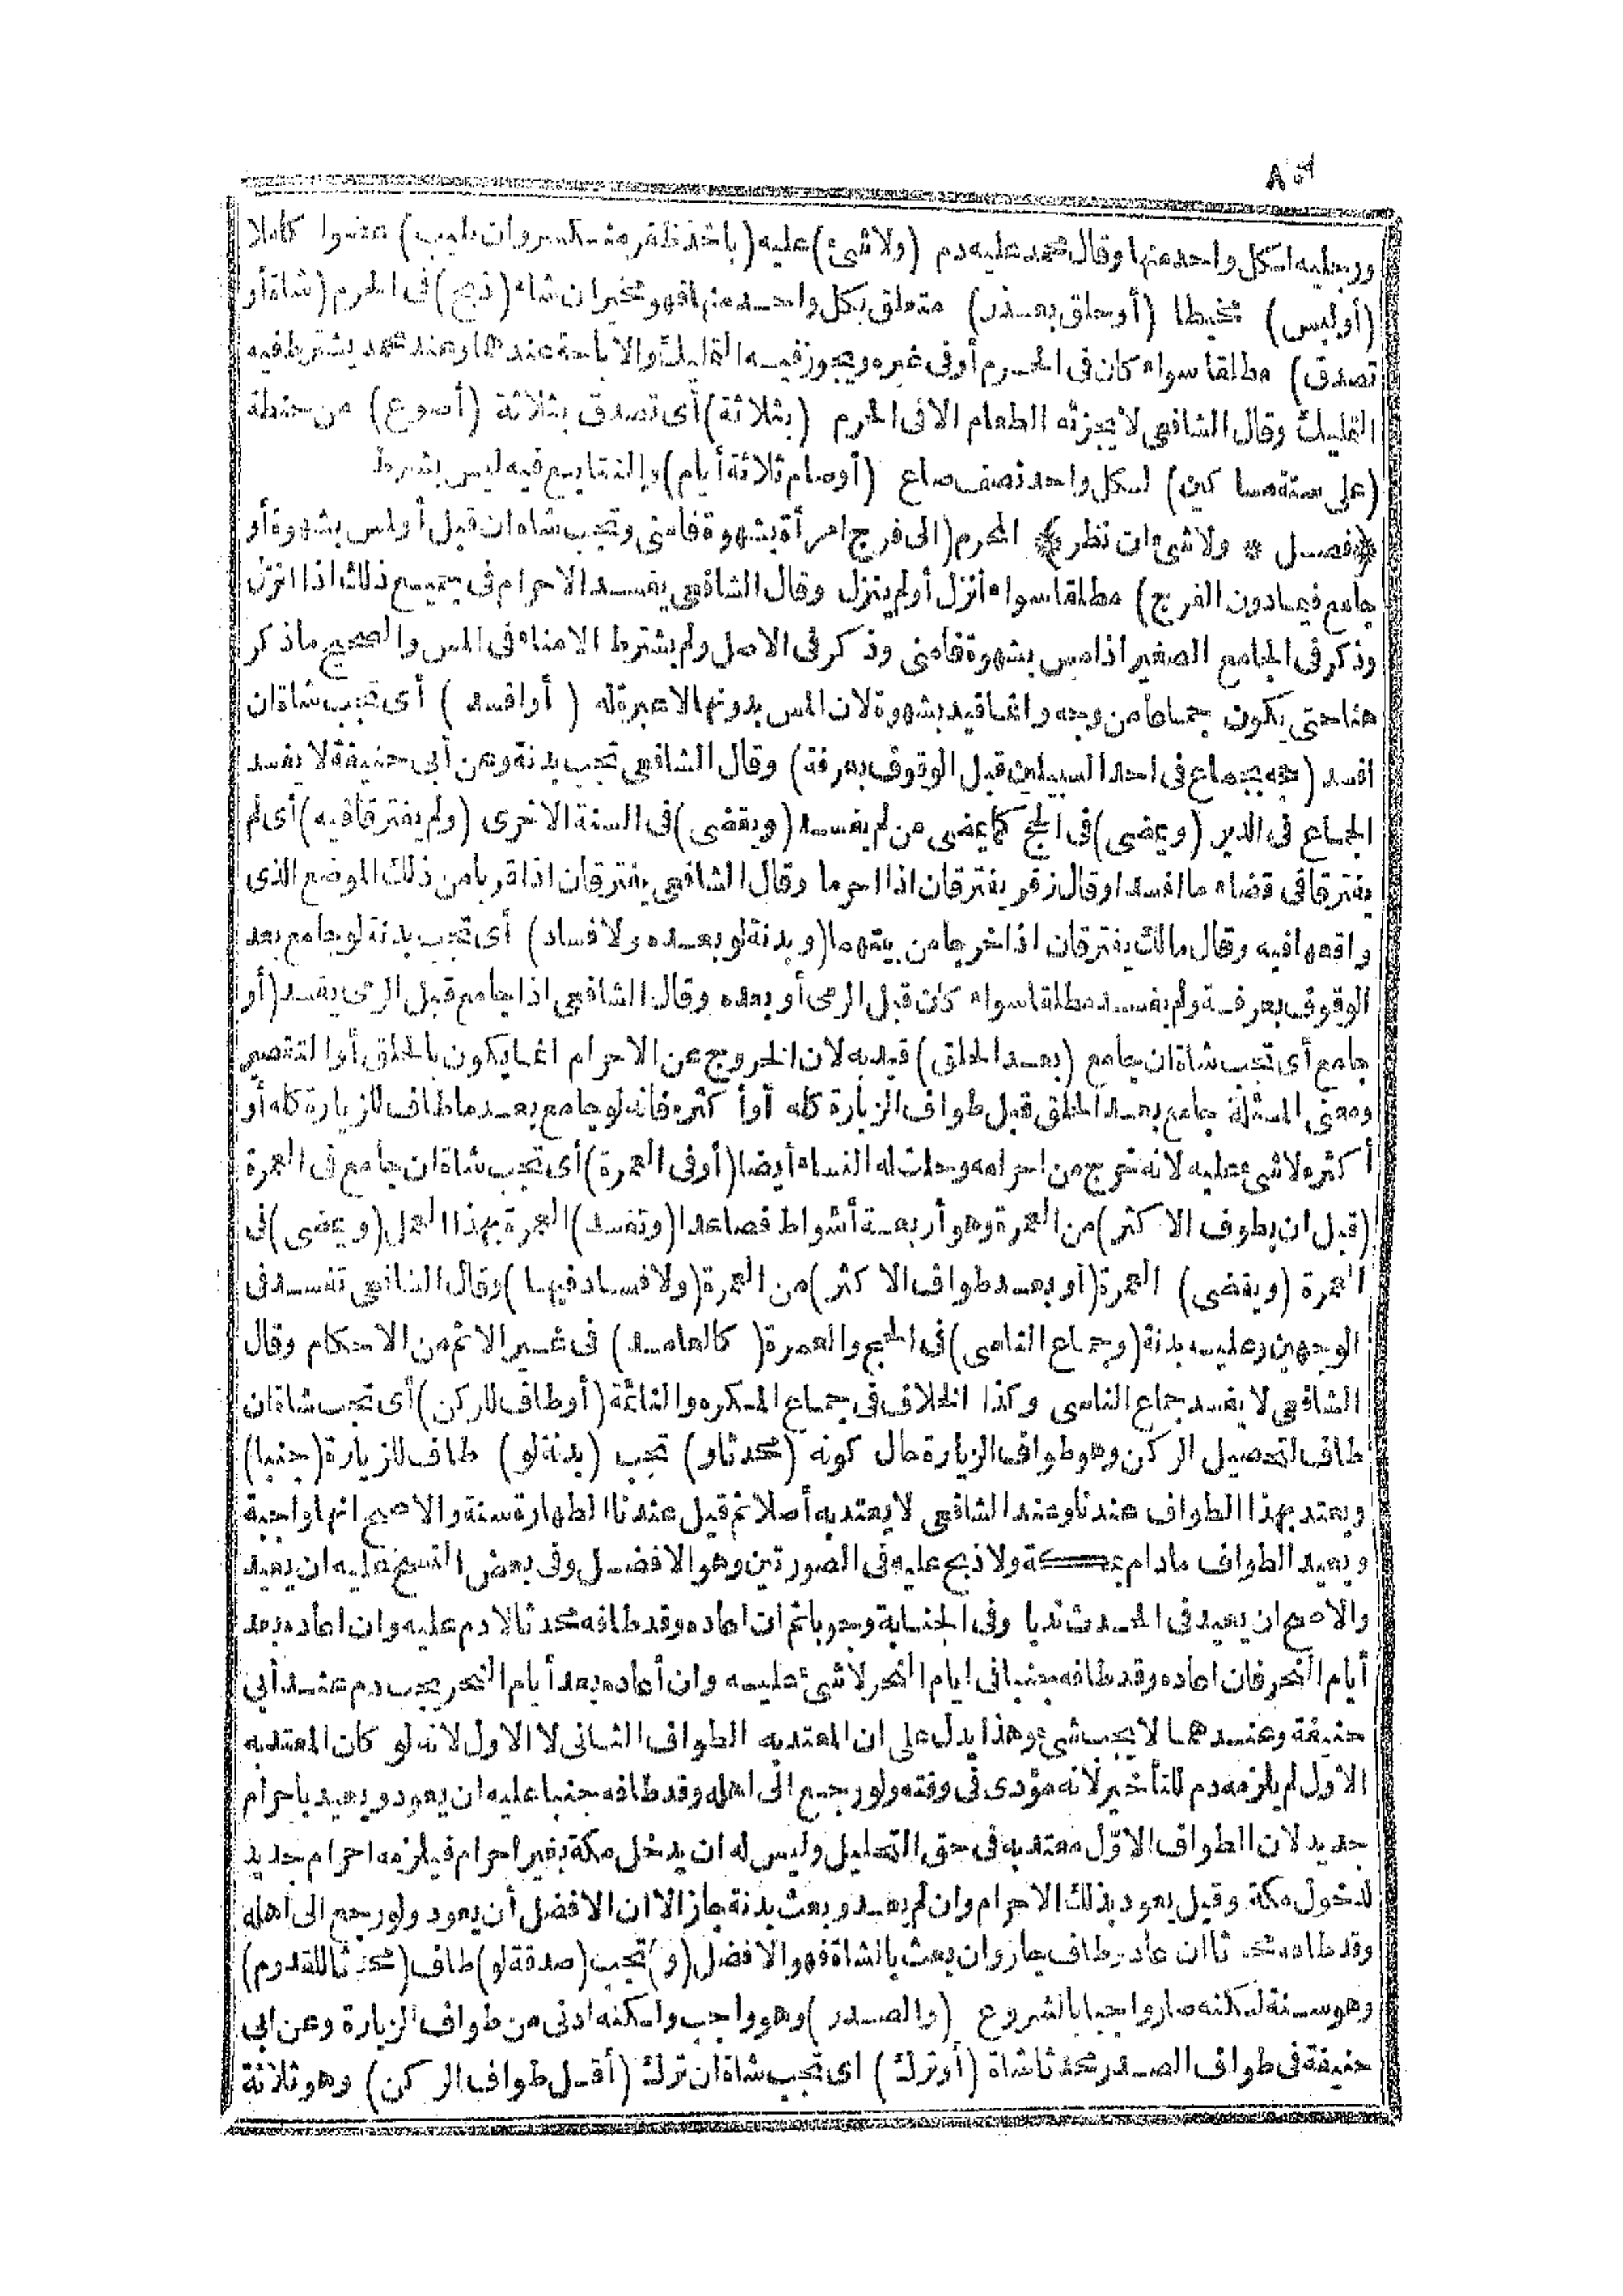 ورجليه لكل واحد منها وقال محمد عليه دم (ولا شئ) عليه (باخذ ظفر منكسر وان طيب) عضوا كاملا
(أو لبس) مخيطا (أو حلق بعذر) متعلق بكل واحد منها فهو مخير ان شاء (ذبح) فى الحرم (شاة أو
تصدق) مطلقا سواء كان فى الحرم أو فى غيره ويجوز فيه التمليك والاباحة عندهما وعند محمد يشترط فيه
التمليك وقال الشافعى لا يجزئه الطعام الا فى الحرم (بثلاثة) أى تصدق بثلاثة (أصوع) من حنطة
(على ستة مساكين) لكل واحد نصف صاع (أو صام ثلاثة أيام) والتتابع فيه ليس بشرط
﴿فصل * ولا شئ ان نظر﴾ المحرم (الى فرج امرأة بشهوة فامنى وتجب شاة ان قبل أو لمس بشهوة أو
جامع فيما دون الفرج) مطلقا سواء أنزل أو لم ينزل وقال الشافعى يفسد الاحرام فى جميع ذلك اذا انزل
وذكر فى الجامع الصغير اذا مس بشهوة فامنى وذكر فى الاصل ولم يشترط الامناء فى المس والصحيح ما ذكر
هنا حتى يكون جماعا من وجه وانما قيد بشهوة لان المس بدونها لا عبرة له (أو افسد) أى تجب شاة ان
افسد (حجه بجماع فى احد السبيلين قبل الوقوف بعرفة) وقال الشافعى تجب بدنة وعن أبى حنيفة لا يفسد
الجماع فى الدبر (ويمضى) فى الحج كما يمضى من لم يفسد (ويقضى) فى السنة الاخرى (ولم يفترقا فيه) أى لم
يفترقا فى قضاء ما افسدا وقال زفر يفترقان اذا احرما وقال الشافعى يفترقان اذا قربا من ذلك الموضع الذى
واقعها فيه وقال مالك يفترقان اذا خرجا من بيتهما (وبدنة لو بعده ولا فساد) أى تجب بدنة لو جامع بعد
الوقوف بعرفة ولم يفسد مطلقا سواء كان قبل الرمى أو بعده وقال الشافعى اذا جامع قبل الرمى يفسد (أو
جامع أى تجب شاة ان جامع (بعد الحلق) قيد به لان الخروج عن الاحرام انما يكون بالحلق أو التقصير
ومعنى المسئلة جامع بعد الحلق قبل طواف الزيارة كله أو أكثره فانه لو جامع بعد ما طاف للزيارة كله أو
أكثره لا شئ عليه لانه خرج من احرامه وحلت له النساء أيضا (أو فى العمرة) أى تجب شاة ان جامع فى العمرة
(قبل ان يطوف الاكثر) من العمرة وهو أربعة أشواط فصاعدا (وتفسد) العمرة بهذا العمل (ويمضى) فى
العمرة (ويقضى) العمرة (أو بعد طواف الاكثر) من العمرة (ولا فساد فيها) وقال الشافعى تفسد فى
الوجهين وعليه بدنة (وجماع الناسى) فى الحج والعمرة (كالعامد) فى غير الاثم من الاحكام وقال
الشافعى لا يفسد جماع الناسى وكذا الخلاف فى جماع المكره والنائمة (أو طاف للركن) أى تجب شاة ان
طاف لتحصيل الركن وهو طواف الزيارة حال كونه (محدثا و) تجب (بدنة لو) طاف للزيارة (جنبا)
ويعتد بهذا الطواف عندنا وعند الشافعى لا يعتد به أصلا ثم قيل عندنا الطهارة سنة والاصح انها واجبة
ويعيد الطواف مادام بمكة ولا ذبح عليه فى الصورتين وهو الافضل وفى بعض النسخ عليه ان يعيد
والاصح ان يعيد فى الحدث ندبا وفى الجنابة وجوبا ثم ان اعاده وقد طافه محدثا لا دم عليه وان اعاده بعد
أيام النحر فان اعاده وقد طافه جنبا فى ايام النحر لا شئ عليه وان أعاده بعد أيام النحر يجب دم عند أبى
حنيفة وعندهما لا يجب شئ وهذا يدل على ان المعتد به الطواف الثانى لا الاول لانه لو كان المعتد به
الاول لم يلزمه دم للتأخير لانه مؤدى فى وقته ولو رجع الى اهله وقد طافه جنبا عليه ان يعود ويعيد باحرام
جديد لان الطواف الاول معتد به فى حق التحليل وليس له ان يدخل مكة بغير احرام فيلزمه احرام جديد
لدخول مكة وقيل يعود بذلك الاحرام وان لم يعد وبعث بدنة جاز الا ان الافضل أن يعود ولو رجع الى أهله
وقد طافه محدثا ان عاد وطاف جاز وان بعث بالشاة فهو الافضل (و) تجب (صدقة لو) طاف (محدثا للقدوم)
وهو سنة لكنه صار واجبا بالشروع (والصدر) وهو واجب ولكنه ادنى من طواف الزيارة وعن ابى
حنيفة فى طواف الصدر محدثا شاة (أو ترك) اى تجب شاة ان ترك (أقل طواف الركن) وهو ثلاثة